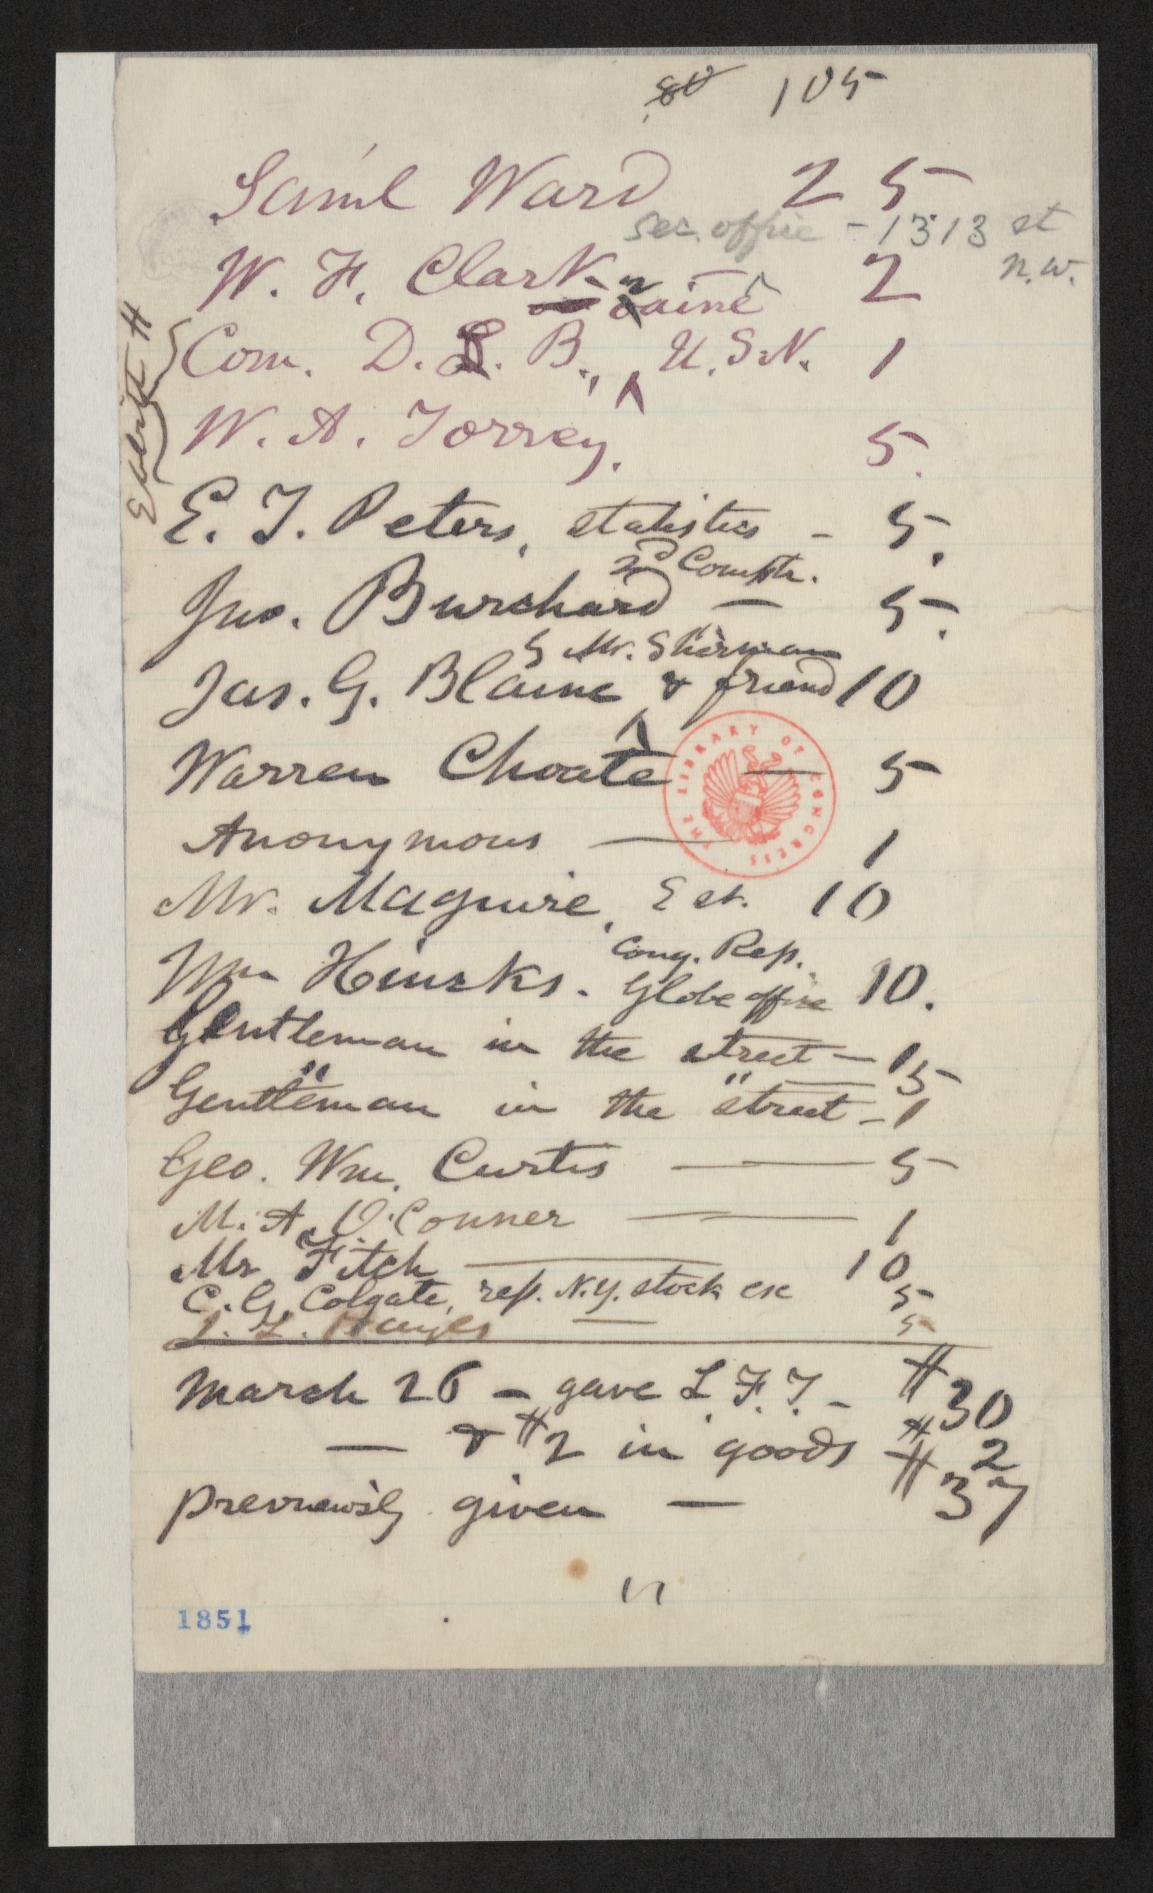 80 105
Saml Ward 25
sec. office - 1313 st
n.w.
W. F. Clark - 2
Com. D. B., U.S.N. 1
Ebbitt H
W. A. Torrey. 5.
E. T. Peters, statistics - 5.
2D Comptr.
Jno. Burchard — 5.
5 Mr. Sherman
Jas. G. Blaine & friend 10
Warren Choate — 5
THE LIBRARY OF CONGRESS
Anonymous — 1
Mr. Maguire, 10
Cong. Rep.
Wm Hincks. Globe office 10.
Gentleman in the street — 15
Gentleman in the street - 1
Geo. Wm. Curtis — 5
M. A. O'Conner — 1
Mr Fitch — 10
C. G. Colgate, rep. N.Y. stock exc 5
L. L. Hayes — 5
March 26 - gave L. F. T. - $30
— & $2 in goods $2
previously given — $37
1851